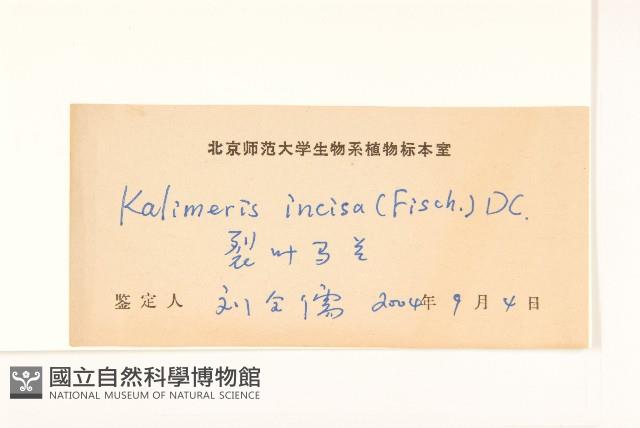 北京师范大学生物系植物标本室
Kalimeris incisa (Fisch.) DC.
裂叶马兰
鉴定人 刘全儒 2004年 9月 4日
國立自然科學博物館
NATIONAL MUSEUM OF NATURAL SCIENCE